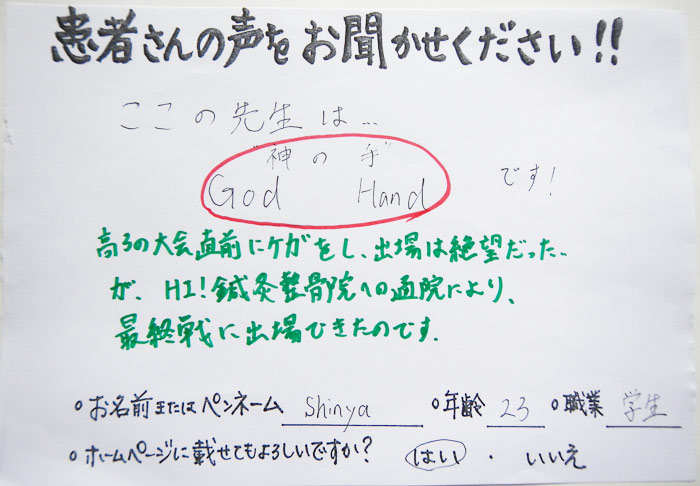 患者さんの声をお聞かせください!!
ここの先生は…
"神の手"
God Hand です!
高3の大会直前にケガをし、出場は絶望だった…
が、HI!鍼灸整骨院への通院により、
最終戦に出場できたのです.
○お名前またはペンネーム Shinya ○年齢 23 ○職業 学生
○ホームページに載せてもよろしいですか? はい ・ いいえ